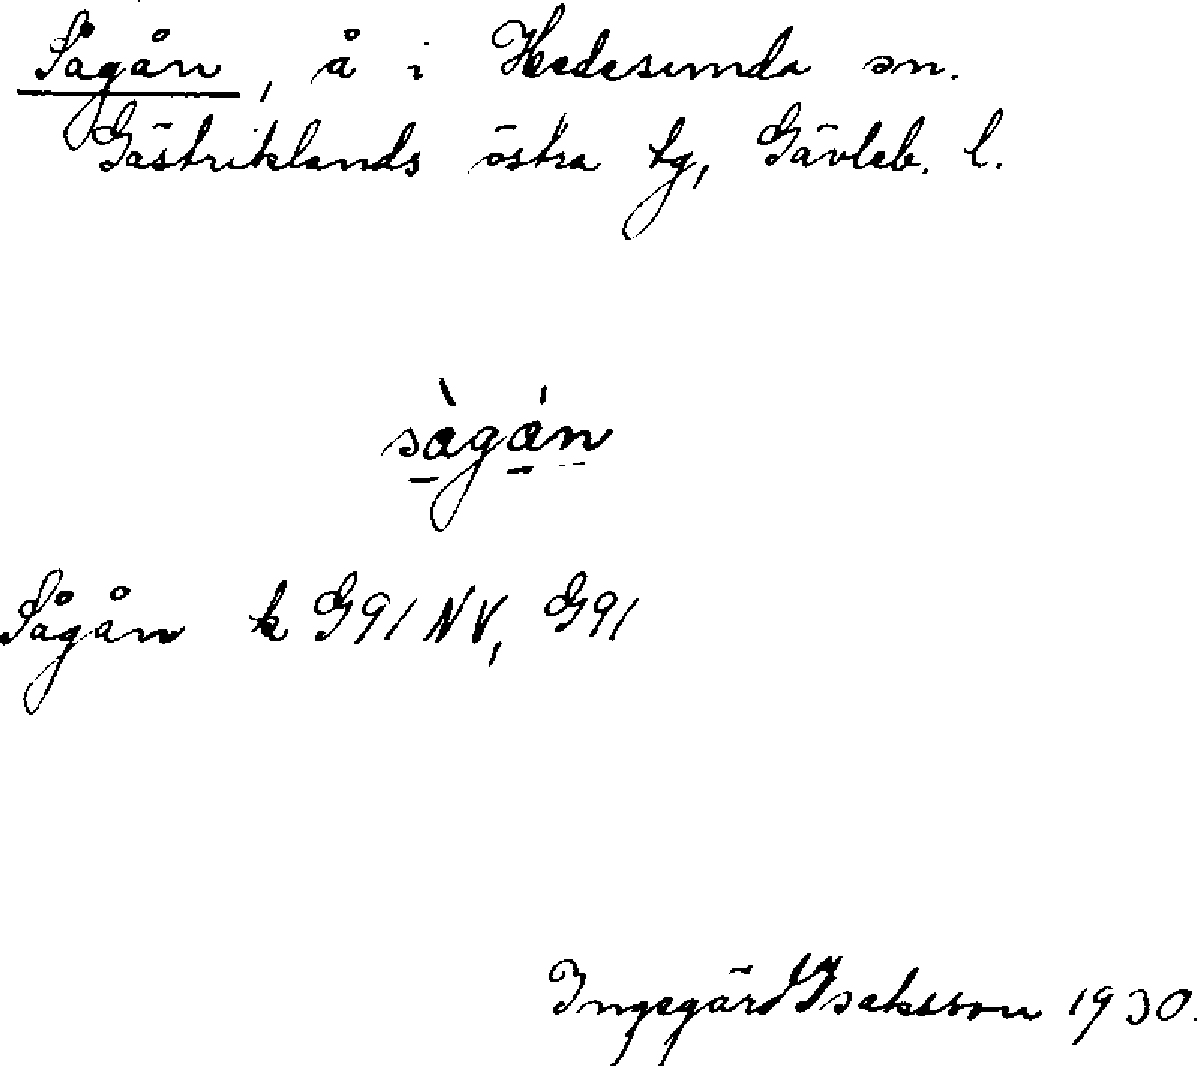 Sågån, å i Hedesunda sn.
Gästriklands östra tg, Gävleb. l.
sàgán
Sågån k G91 NV, G91
Ingegärd Isaksson 1930.